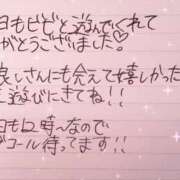 日もビビと遊んでくれて
がとうございました♡
良しさんにも会えて嬉しかった
に遊びにきてね!!
日も12時〜なので
コール待ってます!!